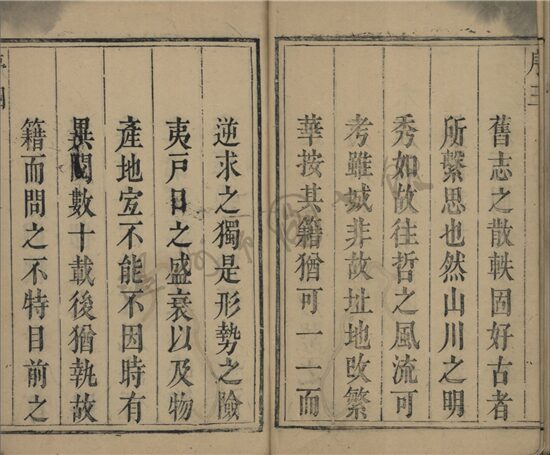 序三
舊志之散軼固好古者
所繫思也然山川之明
秀如故往哲之風流可
考雖城非故址地改繁
華按其籍猶可一一而
逆求之獨是形勢之險
夷戸口之盛衰以及物
產地宐不能不因時有
異閱數十載後猶執故
籍而問之不特目前之
序四